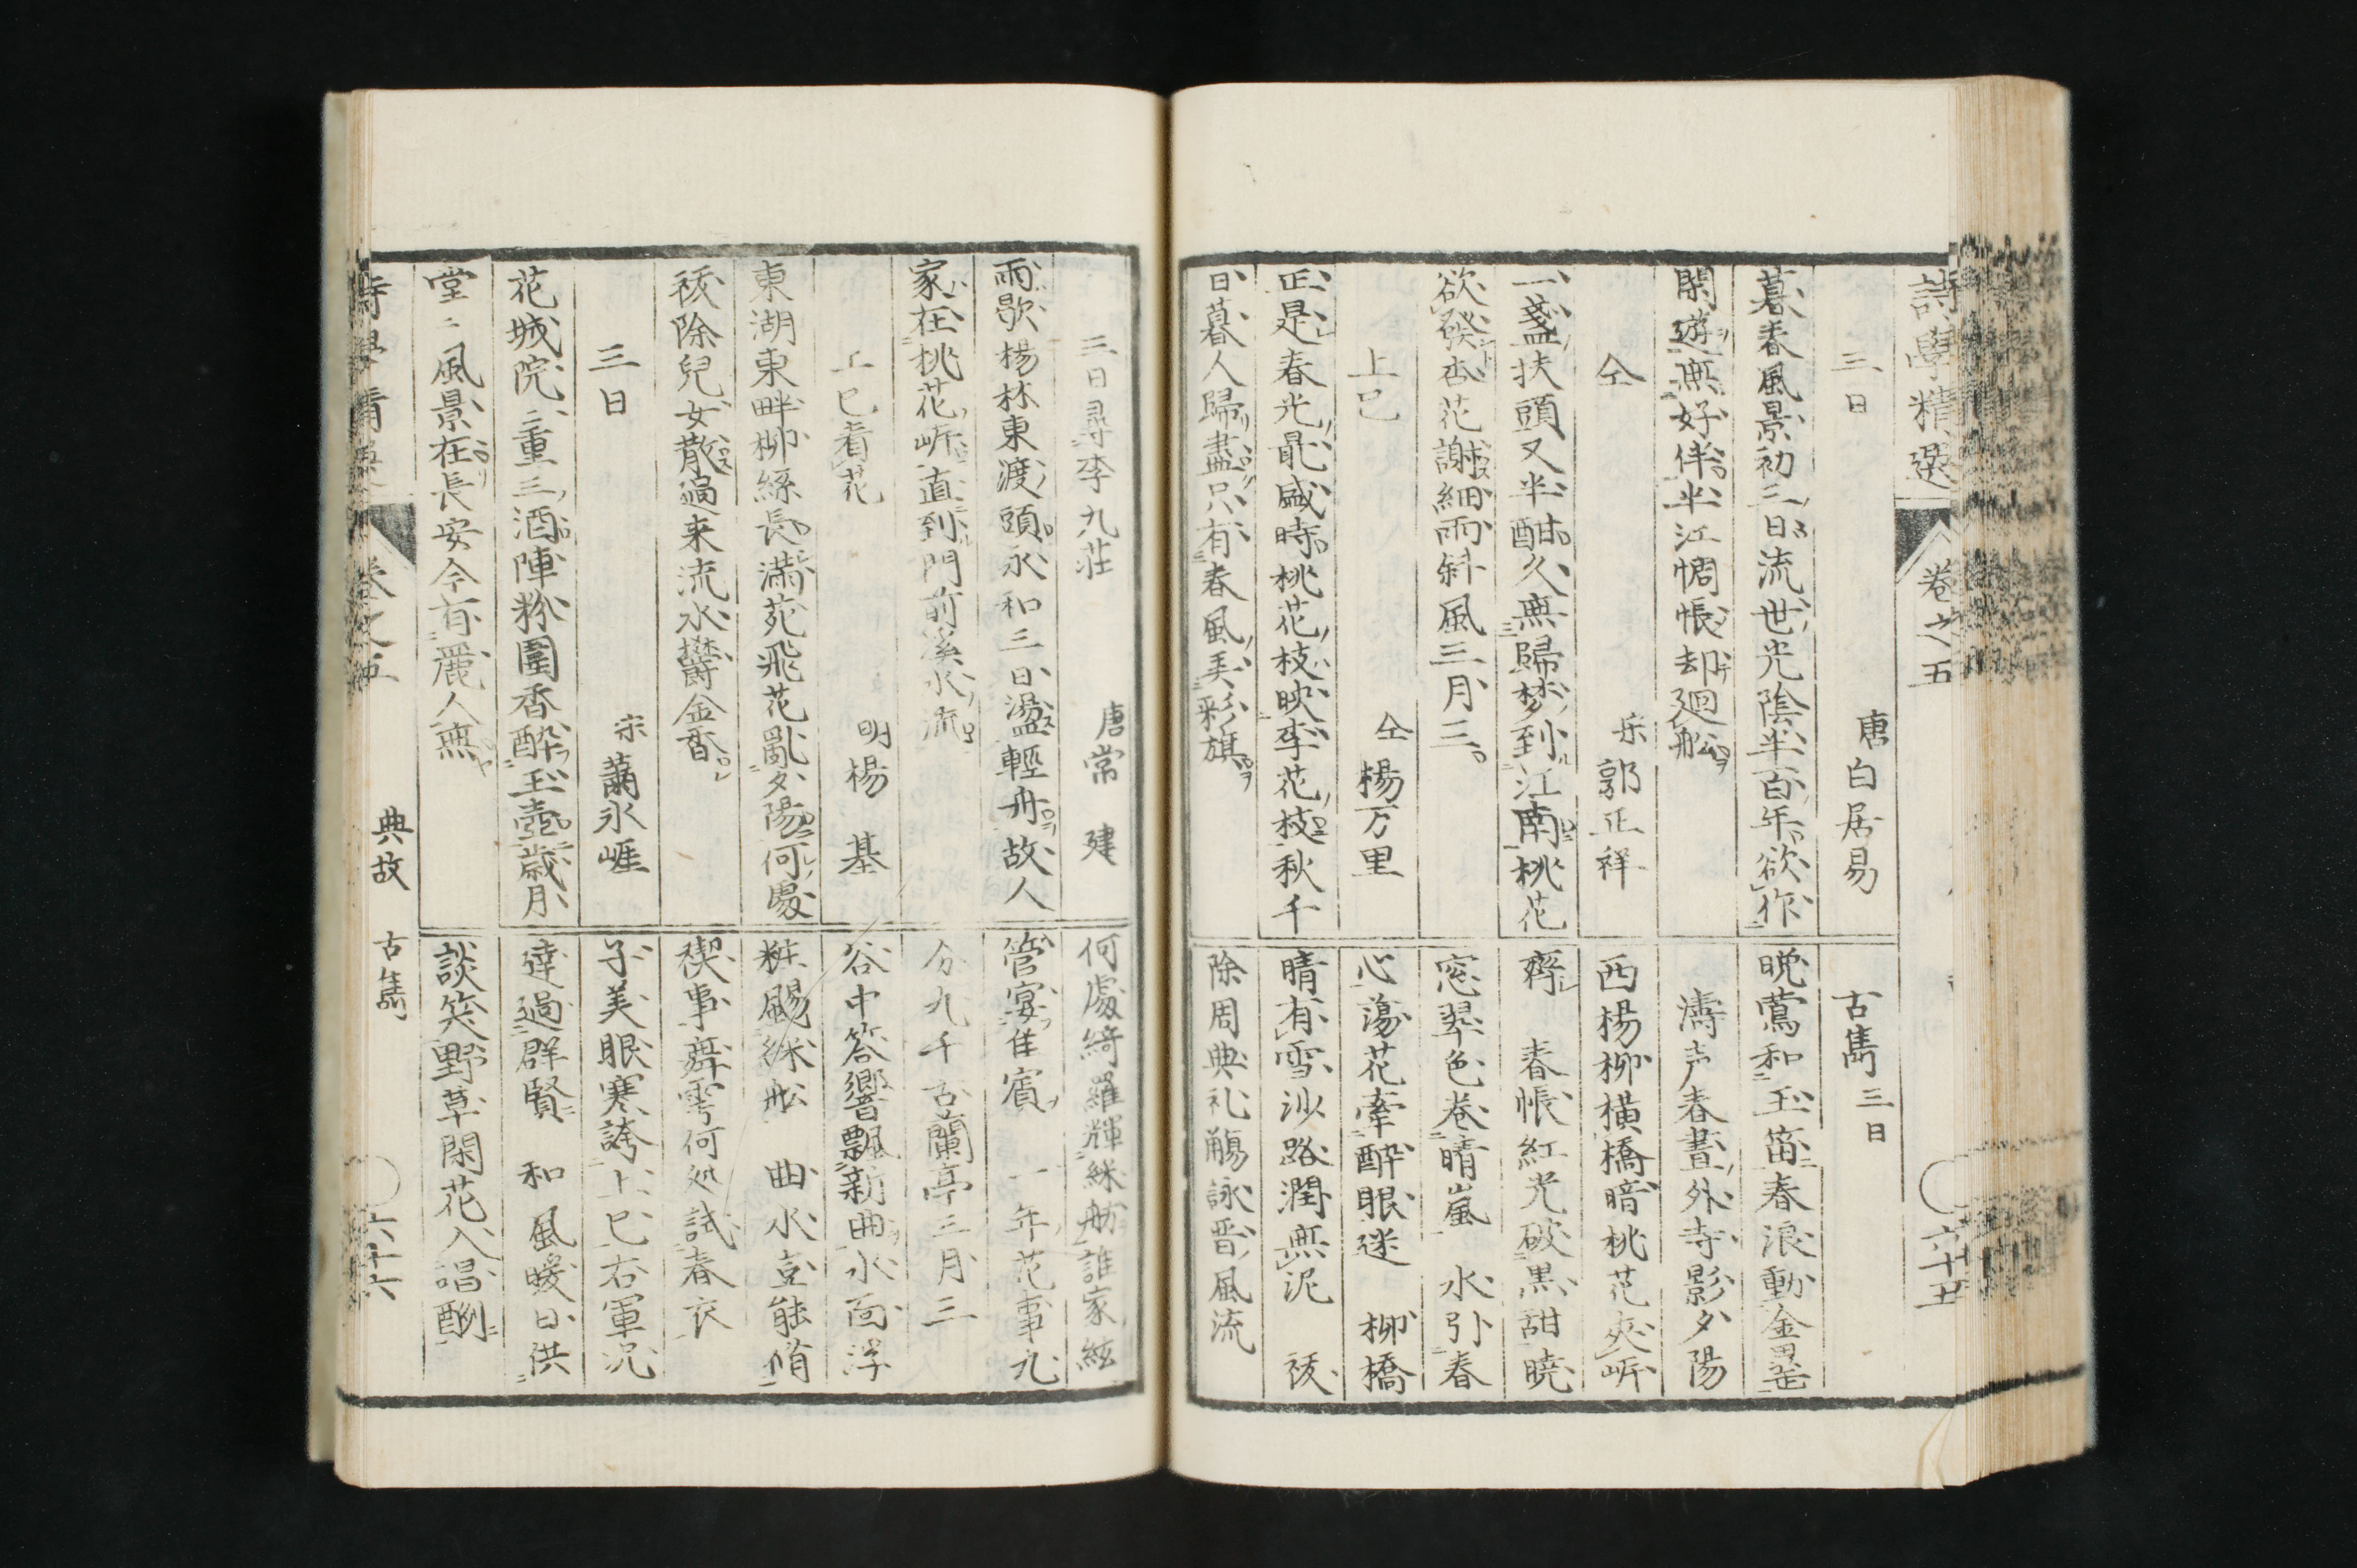 詩學精選 卷之五 六十五
三日 唐白居易
暮春風景初三日流世光陰半百年欲作
閑遊無好伴半江惆悵却廻舩
仝 宋郭正祥
一盞扶頭又半酣久無歸梦到江南桃花
欲發杏花謝細雨斜風三月三
上巳 仝楊万里
正是春光最盛時桃花枝映李花枝秋千
日暮人歸盡只有春風美彩旗
古雋 三日
晩鶯和玉笛春浪動金罍
濤声春晝外寺影夕陽
西楊柳橫橋暗桃花夾岍
齊 春帳紅光破黒甜曉
窓翠色卷晴嵐 水引春
心蕩花牽醉眼迷 柳橋
晴有雪沙路潤無泥 祓
除周典礼觴詠晋風流
三日尋李九莊 唐常建
雨歇楊林東渡頭永和三日盪輕舟故人
家在桃花岍直到門前溪水流
上巳看花 明楊基
東湖東畔柳絲長滿苑飛花亂夕陽何處
祓除兒女散過来流水欝金香
三日 宋蕭氷崖
花城院二重三酒陣粉圍香酔玉壺歳月
堂〻風景在長安今有麗人無
何處綺羅輝綵舫誰家絃
管宴佳賓 一年花事九
分九千古蘭亭三月三
谷中答響飄新曲水面浮
粧颺綵舩 曲水豈能脩
禊事舞雩何処試春衣
子美眼寒誇上巳右軍況
達過群賢 和風暖日供
談笑野草閑花入唱酬
詩學精選 卷之五 典故 古雋 六十六